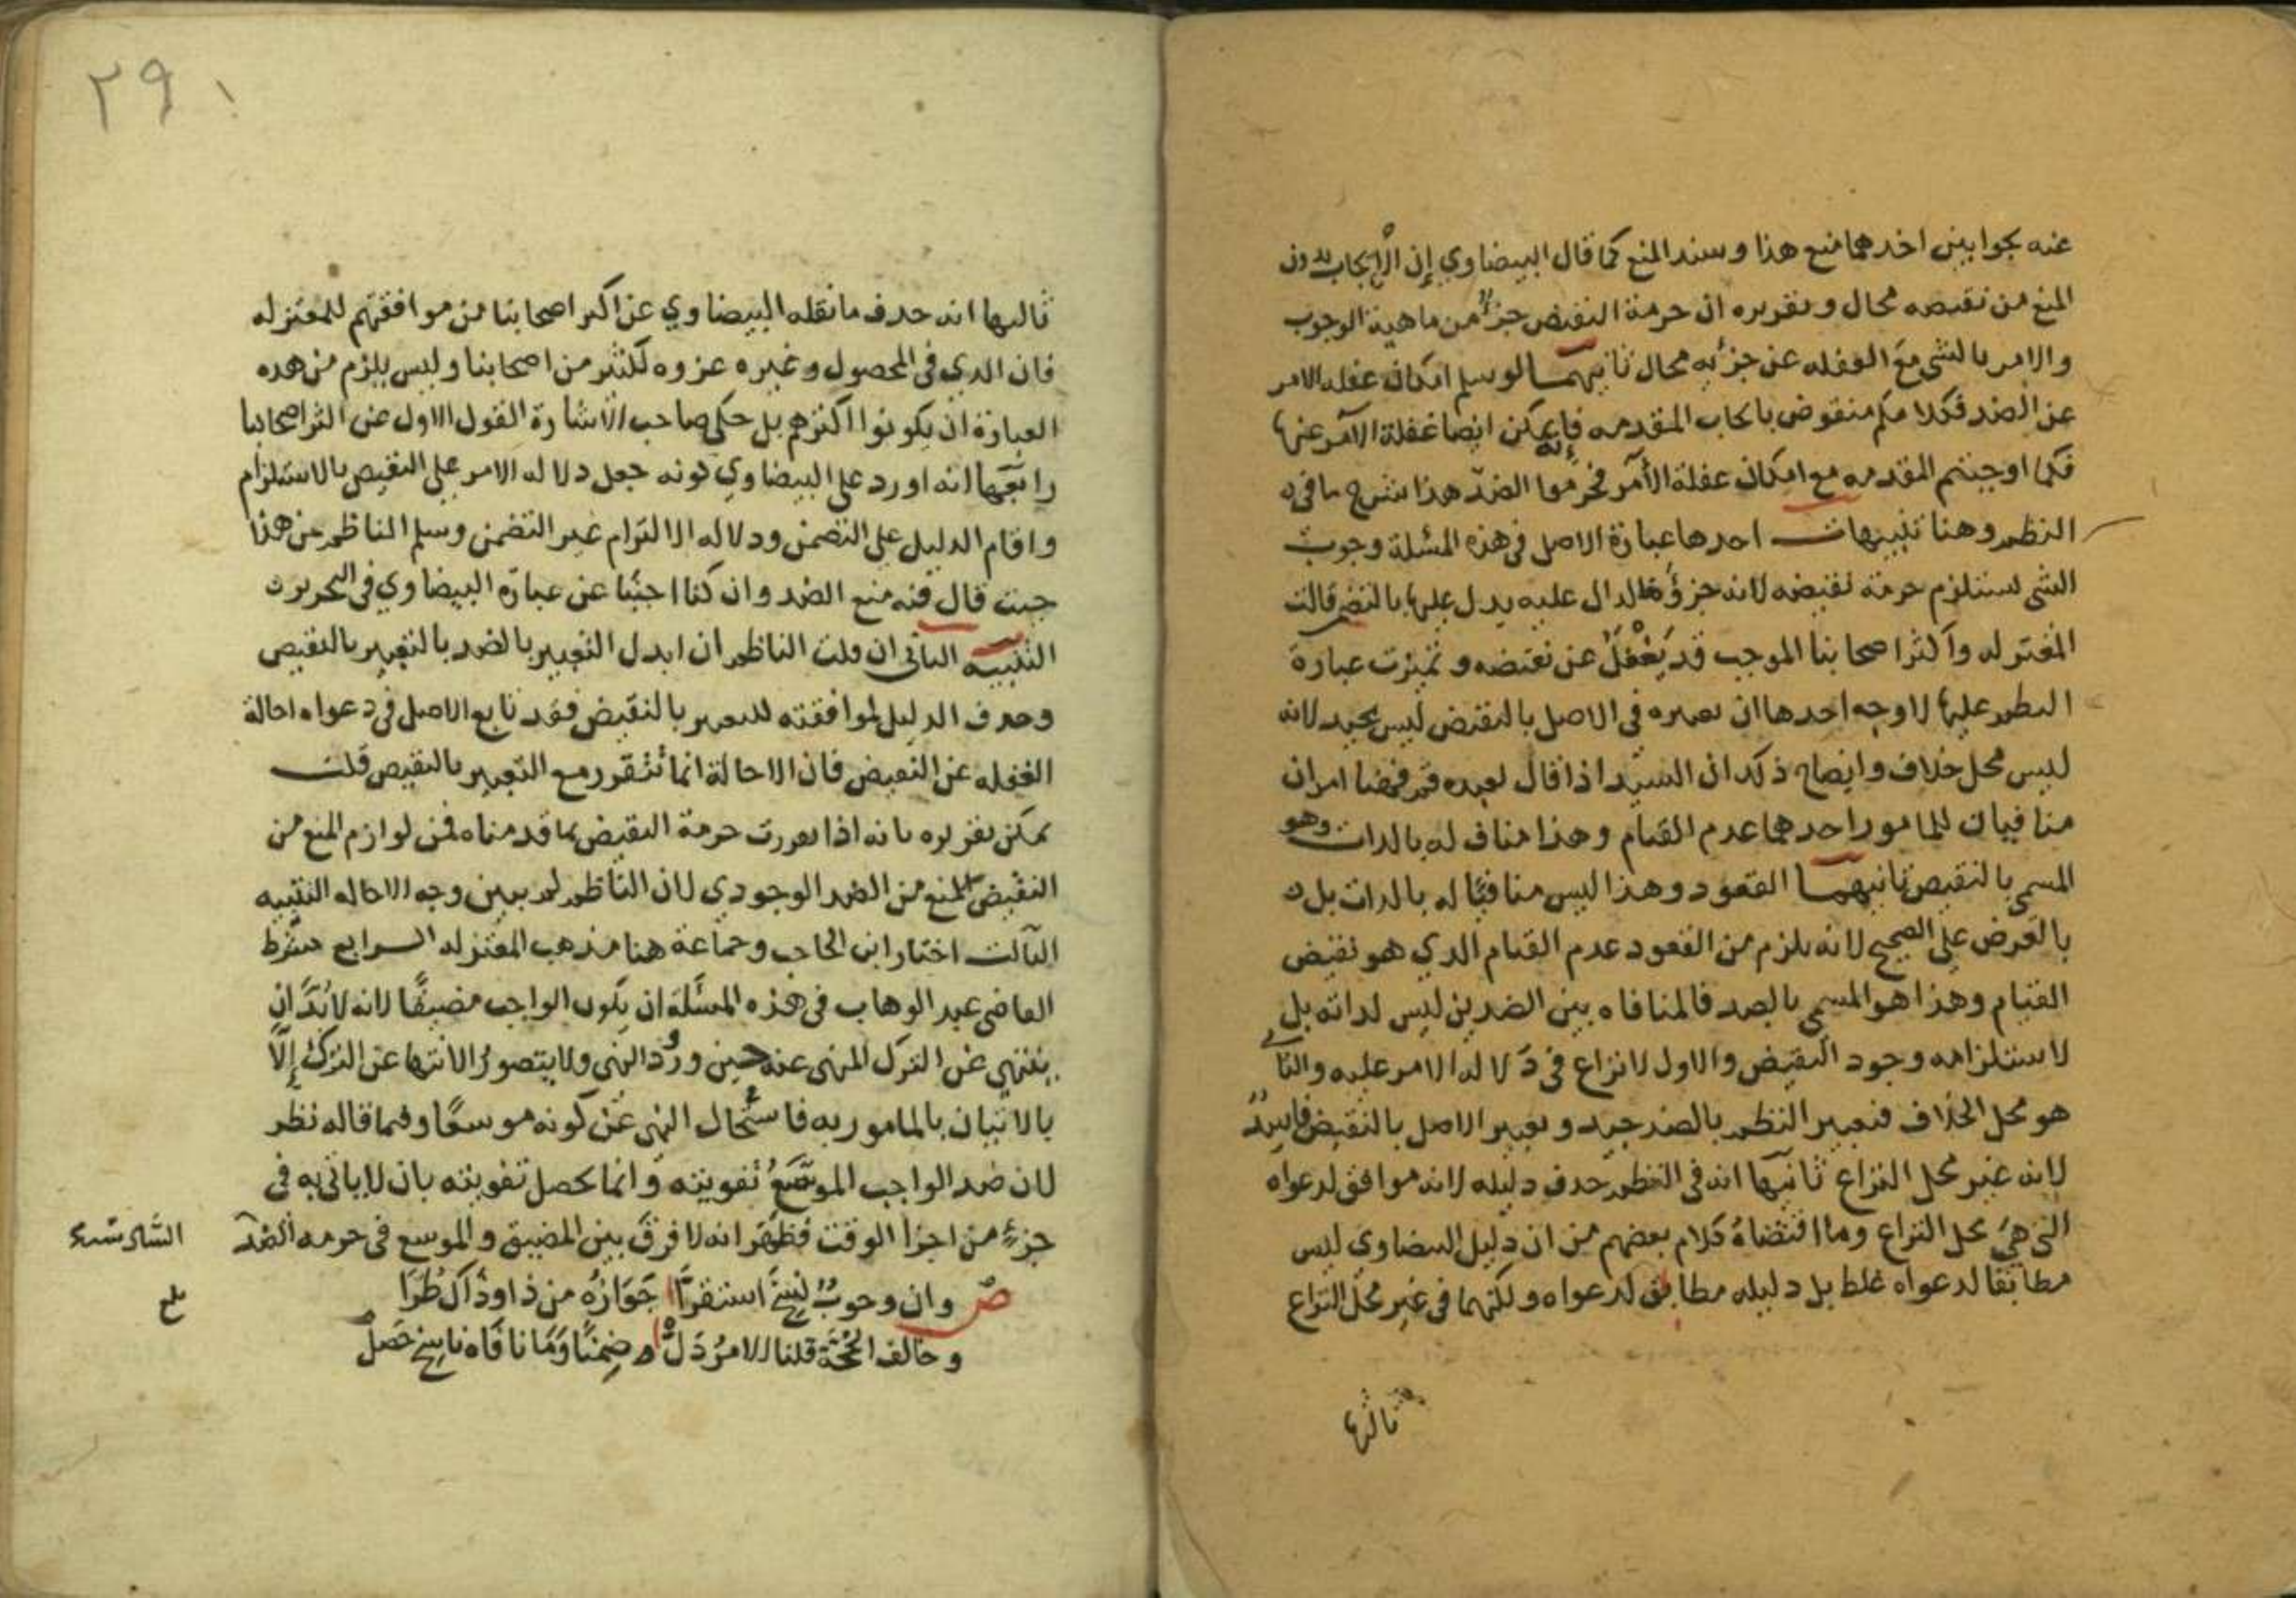 عنه بجوابين احدهما منع هذا وسند المنع كما قال البيضاوي إن الايجاب بدون
المنع من نقيضه محال وتقريره ان حرمة النقيض جزء من ماهية الوجوب
والامر بالشي مع الغفله عن جزئه محال ثانيهما لو سلم امكان غفله الامر
عن الضد فكلامكم منقوض بايجاب المقدمه فإنه يمكن ايضا غفلة الآمر عنها
فكما اوجبتم المقدمه مع امكان غفلة الأمر فحرموا الضد هذا شرح ما في
النظم وهنا تنبيهات احدها عبارة الاصل في هذه المسئلة وجوب
الشي يستلزم حرمة نقيضه لانه جزؤه فالدال عليه يدل عليها بالتضمن قالت
المعتزله واكثر اصحابنا الموجب قد يغفل عن نقيضه وتميزت عبارة
النظم عليها لاوجه احدها ان تعبيره في الاصل بالنقيض ليس بجيد لانه
ليس محل خلاف وايضاح ذلك ان السيد اذا قال لعبده قم فهنا امران
منافيان للمامور احدهما عدم القيام وهذا مناف له بالذات وهو
المسمى بالنقيض ثانيهما القعود وهذا ليس منافيا له بالذات بل
بالعرض على الصحيح لانه يلزم من القعود عدم القيام الذي هو نقيض
القيام وهذا هو المسمى بالضد فالمنافاه بين الضدين ليس لذاته بل
لاستلزامه وجود النقيض والاول لا نزاع في دلالة الامر عليه والثاني
هو محل الخلاف فتعبير النظم بالضد جيد وتعبير الاصل بالنقيض فاسد
لانه غير محل النزاع ثانيها انه في النظم حذف دليله لانه موافق لدعواه
التي هي محل النزاع وما اقتضاه كلام بعضهم من ان دليل البيضاوي ليس
مطابقا لدعواه غلط بل دليله مطابق لدعواه ولكنهما في غير محل النزاع
ثالثها
٢٩١
ثالثها انه حذف ما نقله البيضاوي عن اكثر اصحابنا من موافقتهم للمعتزله
فان الذي في المحصول وغيره عزوه لكثير من اصحابنا وليس يلزم من هذه
العبارة ان يكونوا اكثرهم بل حكى صاحب الاشارة القول الاول عن اكثر اصحابنا
رابعها انه اورد على البيضاوي كونه جعل دلاله الامر على النقيض بالاستلزام
واقام الدليل على التضمن ودلاله الالتزام غير التضمن وسلم الناظم من هذا
حيث قال فيه منع الضد وان كنا اجبنا عن عبارة البيضاوي في التحرير
التنبيه الثاني ان قلت الناظم ان ابدل التعبير بالضد بالتعبير بالنقيض
وحذف الدليل لموافقته للتعبير بالنقيض فقد تابع الاصل في دعواه احالة
الغفله عن النقيض فان الاحالة انما تتقرر مع التعبير بالنقيض قلت
يمكن تقريره بانه اذا تقررت حرمة النقيض بما قدمناه فمن لوازم المنع من
النقيض المنع من الضد الوجودي لان الناظم لم يبين وجه الاحاله التنبيه
الثالث اختار ابن الحاجب وجماعة هنا مذهب المعتزله الرابع شرط
القاضي عبد الوهاب في هذه المسئلة ان يكون الواجب مضيقا لانه لابد ان
ينتهي عن الترك المنهي عنه حين ورود النهي ولا يتصور الانتها عن الترك إلا
بالاتيان بالمامور به فاستحال النهي عن كونه موسعا وفيما قاله نظر
لان ضد الواجب الموسع تفويته وانما يحصل تفويته بان لا ياتي به في
جزء من اجزا الوقت فظهر انه لا فرق بين المضيق والموسع في حرمه الضد
ص وان وجوب نسخ استقرا جوازه من ذا وذاك طرا
وخالف الحجة قلنا الامر دل ضمنا وما نافاه ناسخ حصل
بلغ